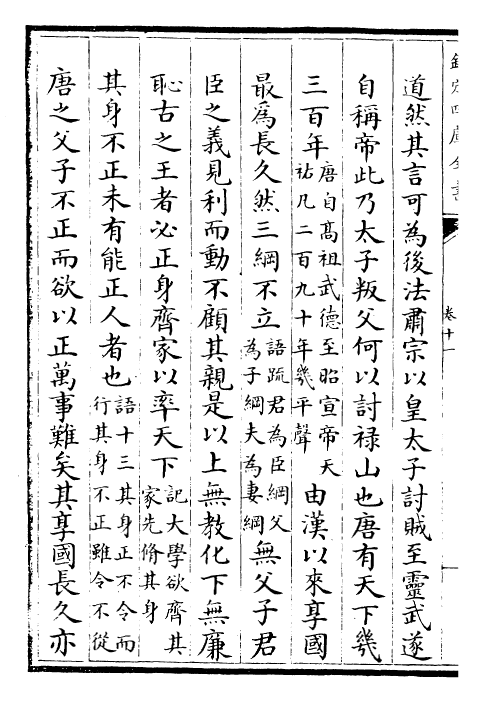 欽定四庫全書
卷十一
道然其言可為後法肅宗以皇太子討賊至靈武遂
自稱帝此乃太子叛父何以討祿山也唐有天下幾
三百年唐自髙祖武德至昭宣帝天祐凡二百九十年幾平聲由漢以來享國
最為長久然三綱不立語疏君為臣綱父為子綱夫為妻綱無父子君
臣之義見利而動不顧其親是以上無教化下無廉
恥古之王者必正身齊家以率天下記大學欲齊其家先脩其身
其身不正未有能正人者也語十三其身正不令而行其身不正雖令不從
唐之父子不正而欲以正萬事難矣其享國長久亦